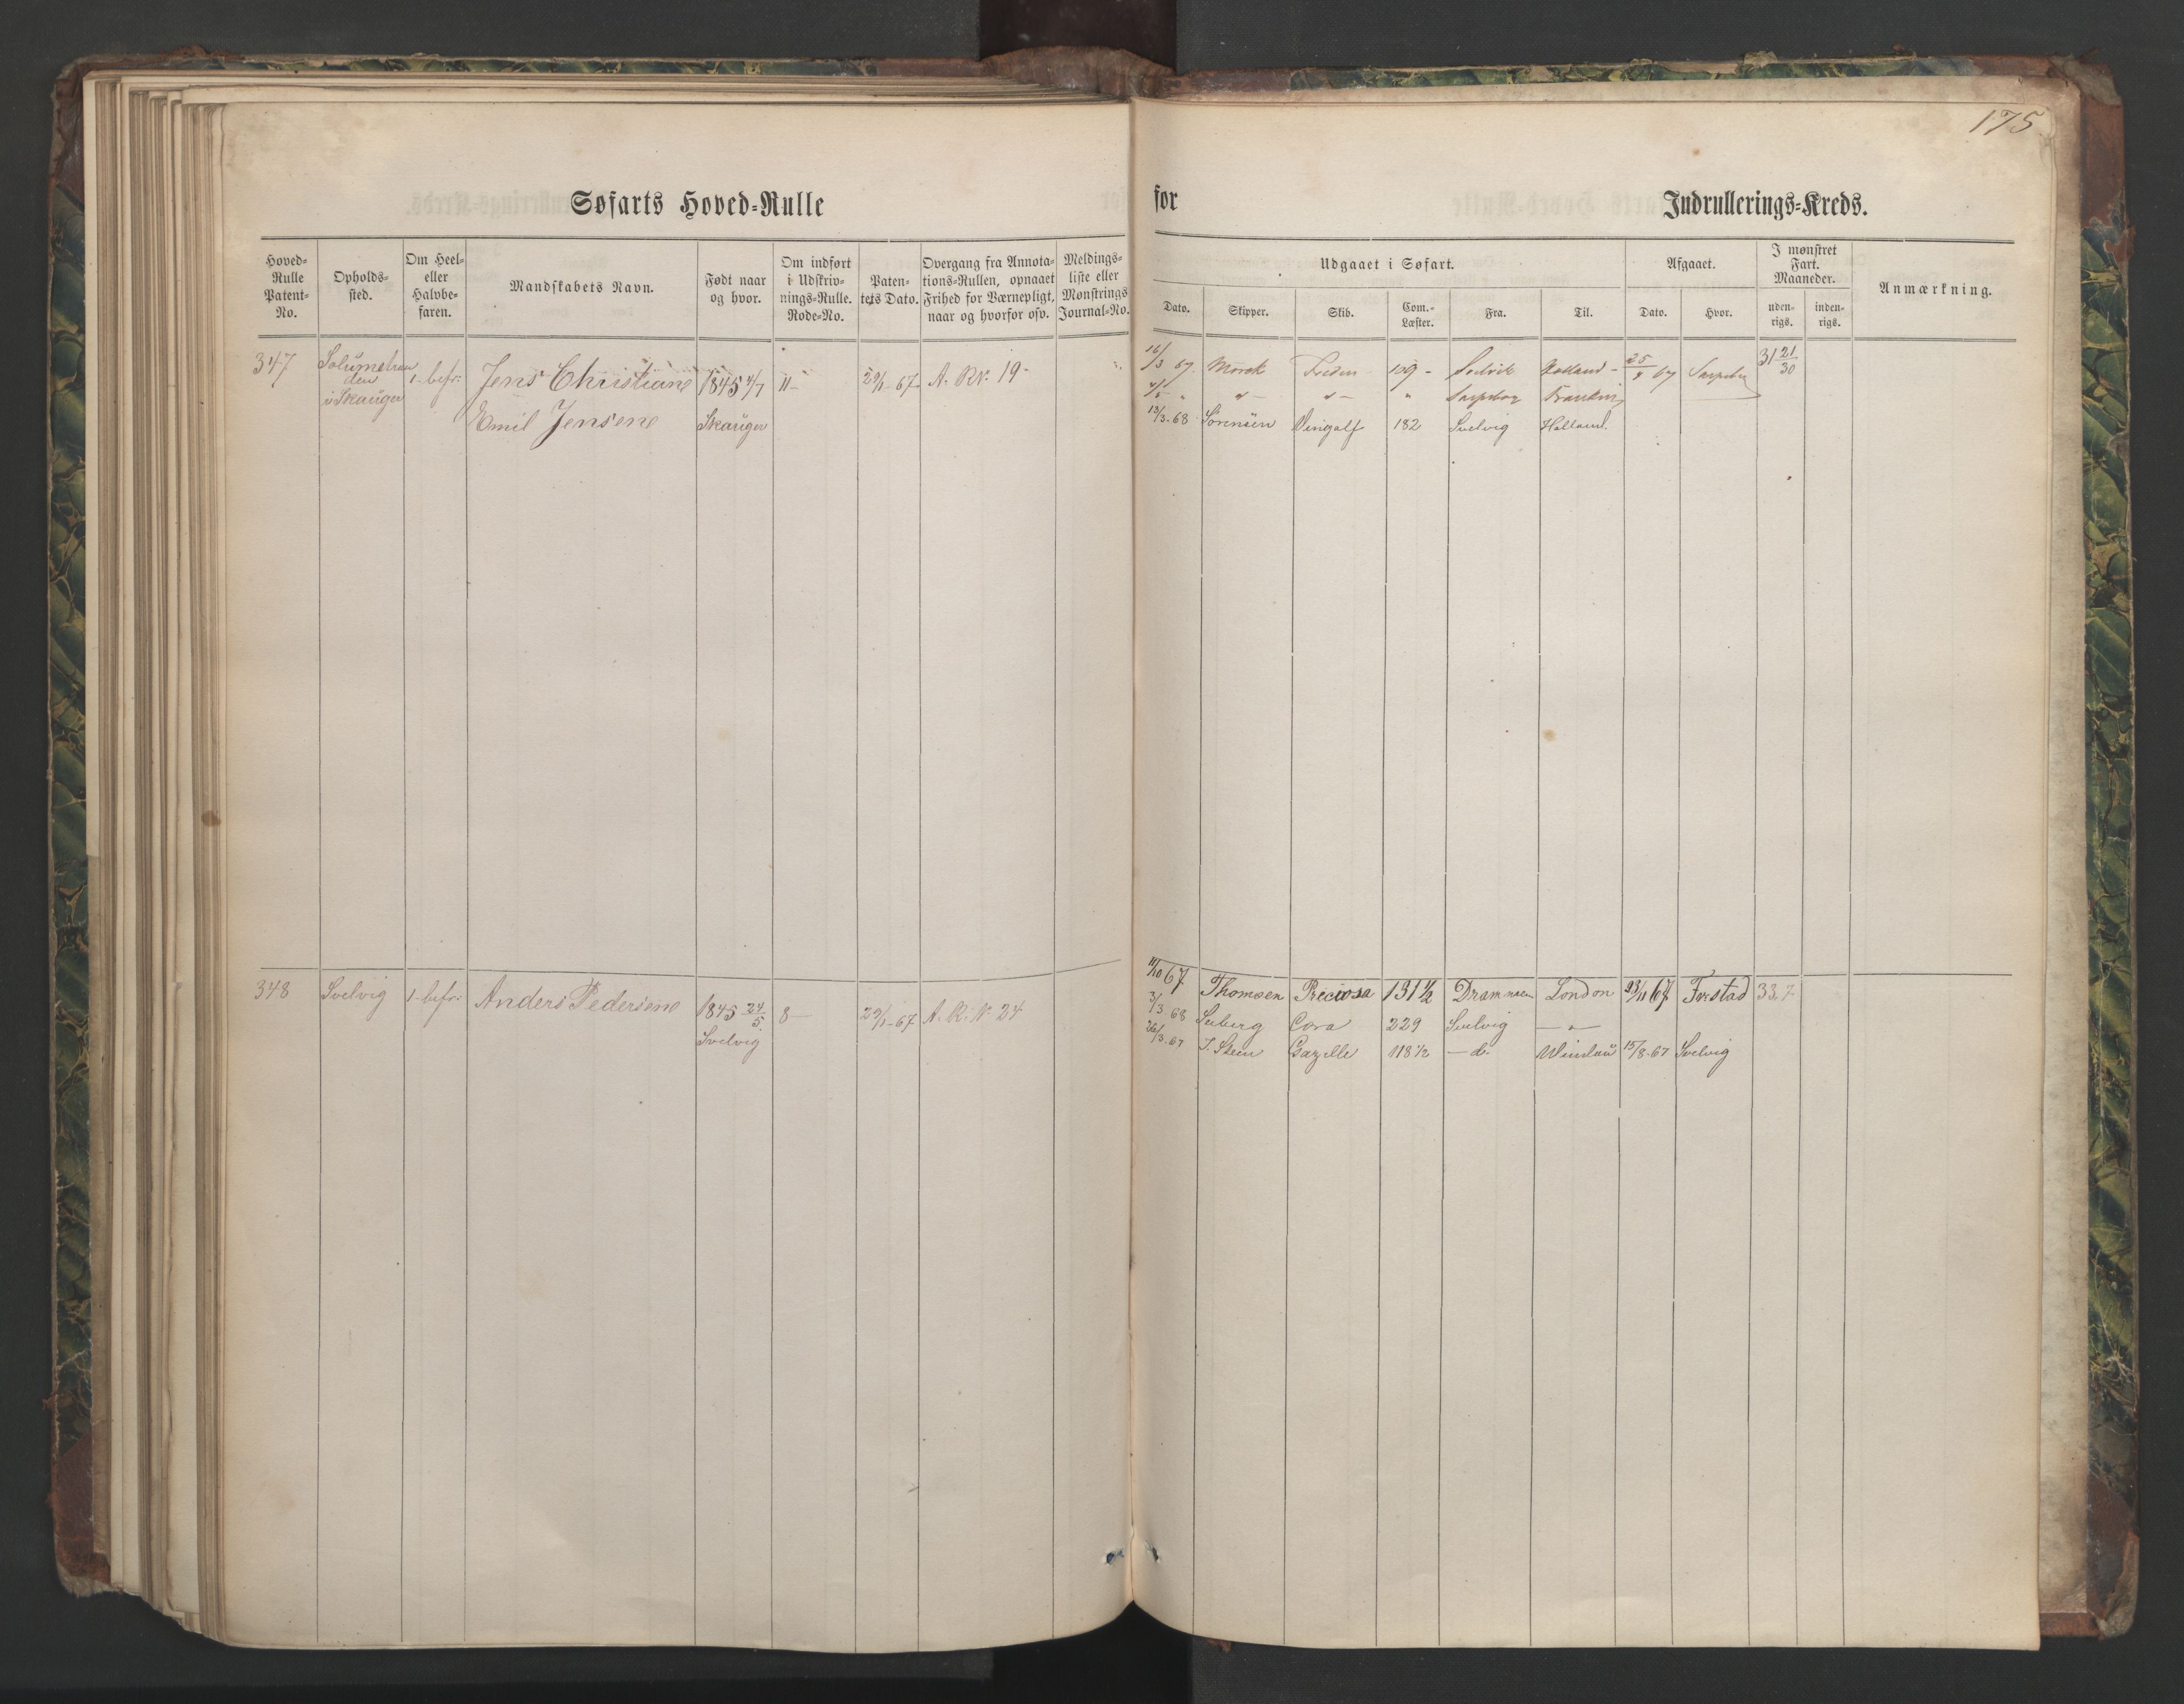 175
Søfarts Hoved-Rulle
for
Indrullerings-Kreds.
Hoved-Rulle Patent-No.
Opholds-sted.
Om Heel- eller Halvbe-faren.
Mandskabets Navn.
Født naar og hvor.
Om indført i Udskriv-nings-Rulle. Rode-No.
Paten-tets Dato.
Overgang fra Annota-tions-Rullen, opnaaet Frihed for Værnepligt, naar og hvorfor osv.
Meldings-liste eller Mønstrings Journal-No.
Udgaaet i Søfart.
Afgaaet.
I mønstret Fart. Maaneder.
Anmærkning.
Dato. Skipper. Skib. Com.-Læster. Fra. Til. Dato. Hvor. uden-rigs. inden-rigs.
347
den
i Skauger
1-befr:
Jens Christian
Emil Jensen
1845 4/7
Skauger
11-
29/1-67-
A. RN. 19-
16/3 67. Mørck 109- Svelvik Holland- 67 31 21/30
" " "
13/3-68 Sørensen Vingolf 182 Svelvig Holland.
348 Svelvig 1-befr: Anders Pedersen 1845 24/5. 8- 29/1-67 A. R. N. 24
Svelvig
11/10 67 Thomsen Preciosa 131 1/2 Drammen London 23/11 67 33.7
3/3 68 Seeberg Cora 229 Svelvig — " —
26/3-67 J. Steen Gazelle 118 1/2 — d. Windau 15/8-67 Svelvig